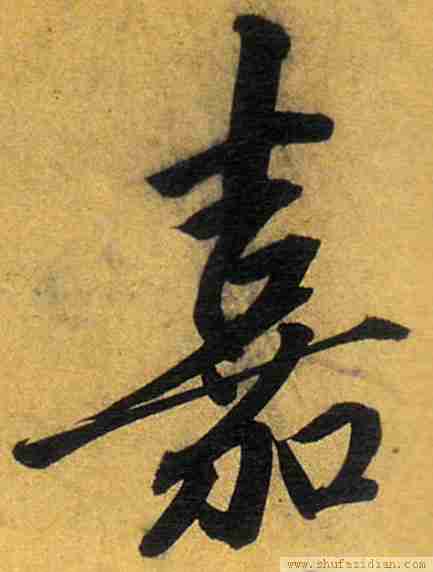 嘉
www.shufazidian.com